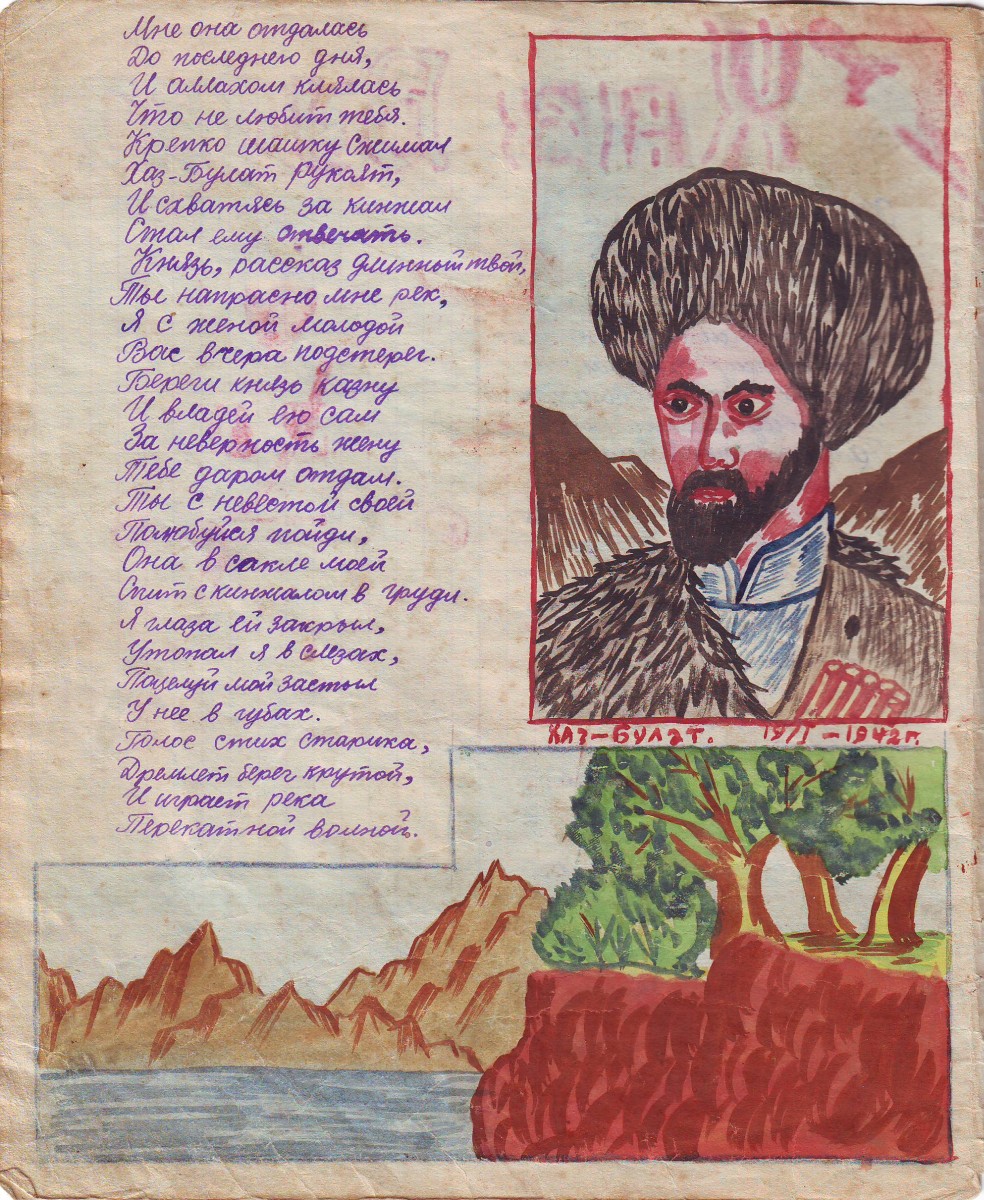 Мне она отдалась
До последнего дня,
И аллахом клялась
Что не любит тебя.
Крепко шашку сжимал
Хаз-Булат рукоят,
И схватясь за кинжал
Стал ему отвечать.
Князь, рассказ длинный твой,
Ты напрасно мне рек,
Я с женой молодой
Вас вчера подстерег.
Береги князь казну
И владей ею сам
За неверность жену
Тебе даром отдам.
Ты с невестой своей
Полюбуйся пойди,
Она в сакле моей
Спит с кинжалом в груди.
Я глаза ей закрыл,
Утопал я в слезах,
Поцелуй мой застыл
У нее в губах.
Голос стих старика,
Дремлет берег крутой,
И играет река
Перекатной волной.
ХАЗ-БУЛАТ. 19/I-1942г.